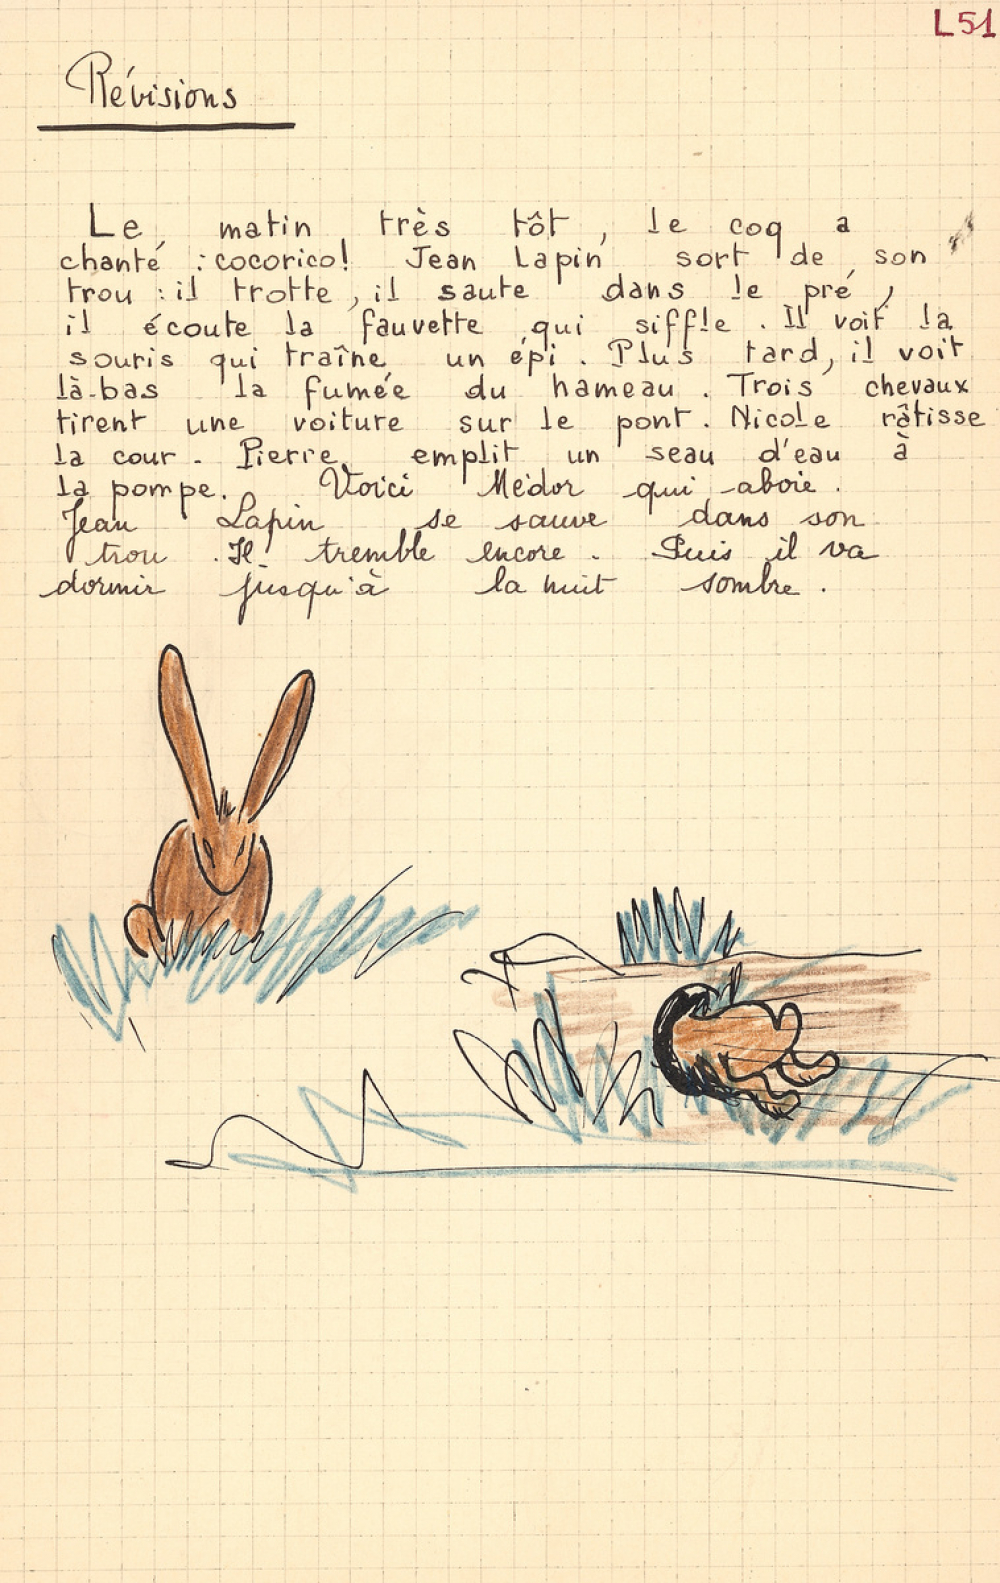 L51
Révisions
Le matin très tôt, le coq a
chanté : cocorico! Jean Lapin sort de son
trou : il trotte, il saute dans le pré,
il écoute la fauvette qui siffle. Il voit la
souris qui traîne un épi. Plus tard, il voit
là-bas la fumée du hameau. Trois chevaux
tirent une voiture sur le pont. Nicole râtisse
la cour. Pierre emplit un seau d'eau à
la pompe. Voici Médor qui aboie.
Jean Lapin se sauve dans son
trou. Il tremble encore. Puis il va
dormir jusqu'à la nuit sombre.